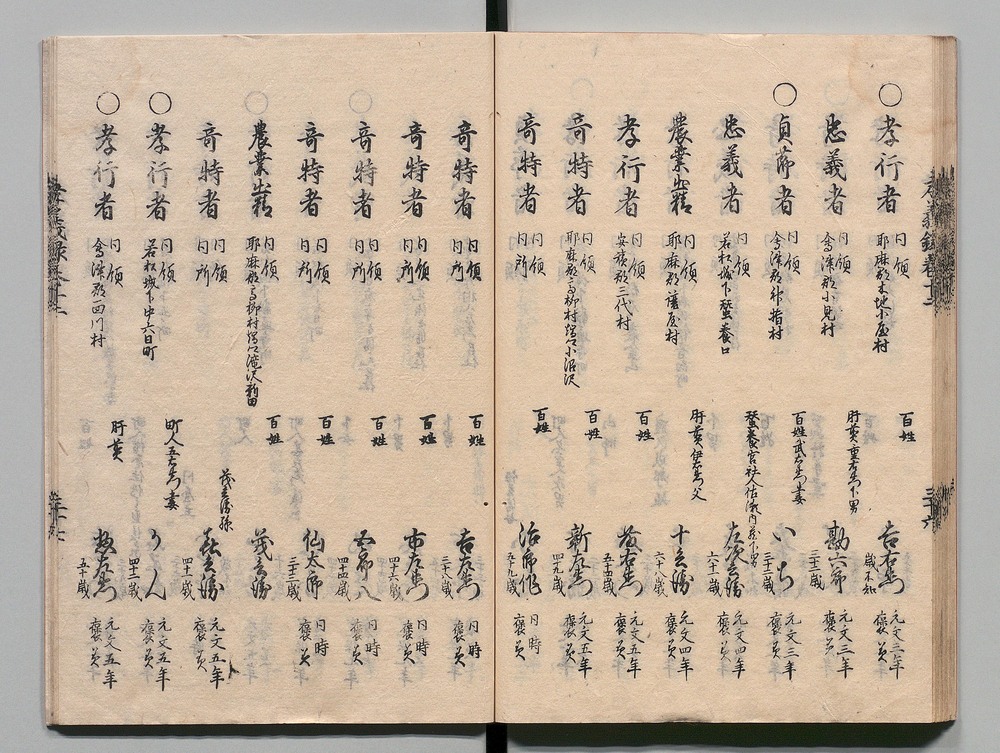 ○孝行者 同領 耶麻郡木地小屋村 百姓 吉右衛門 歳不知 元文三年 褒美
忠義者 同領 会津郡小見村 肝煎重右衛門下男 勘六 三十三歳 元文三年 褒美
○貞節者 同領 会津郡針指村 百姓武右衛門妻 いち 三十二歳 元文三年 褒美
忠義者 同領 若松城下蚕養口 蚕養宮社人佐瀬河内下男 六十一歳 元文四年 褒美
農業出精 同領 耶麻郡 村 肝煎伊右衛門父 六十八歳 元文五年 褒美
孝行者 同領 安積郡三代村 百姓 五十四歳 元文五年 褒美
奇特者 同領 耶麻郡高柳村 小沼沢 百姓 新左衛門 四十九歳 元文五年 褒美
奇特者 同領 同所 百姓 治郎作 五十九歳 同時 褒美
奇特者 同領 同所 百姓 吉左衛門 三十八歳 同時 褒美
奇特者 同領 同所 百姓 市左衛門 四十六歳 同時 褒美
奇特者 同領 同所 百姓 五郎八 四十四歳 同時 褒美
奇特者 同領 同所 百姓 仙太郎 三十三歳 同時 褒美
農業出精 同領 耶麻郡高柳村 滝沢新田 百姓 茂兵衛
奇特者 同領 同所 茂兵衛孫 喜兵衛 四十一歳 元文五年 褒美
○孝行者 同領 若松城下中六日町 町人五右衛門妻 りん 四十二歳 元文五年 褒美
○孝行者 同領 会津郡四川村 肝煎 五十歳 元文五年 褒美